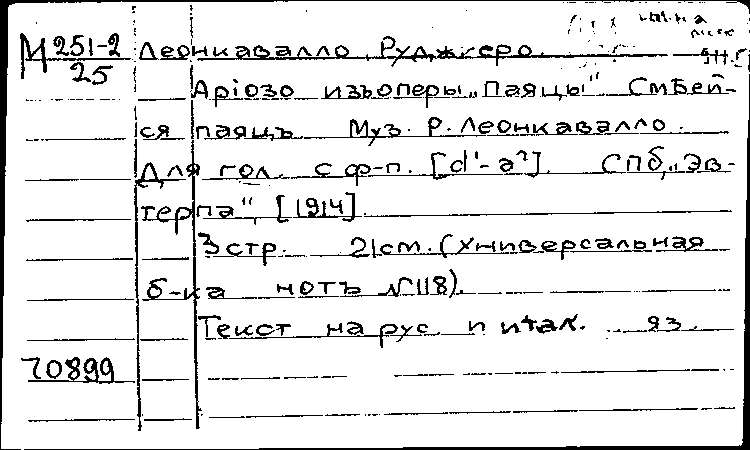 М 251-2
25
Леонкавалло, Руджеро.
Арiозо изъ оперы „Паяцы" Смѣй-
ся паяцъ Муз. Р. Леонкавалло.
Для гол. с ф-п. [d'-a²]. СПб, „Эв-
терпа", [1914].
3 стр. 21 см. (Универсальная
б-ка нотъ №118).
Текст на рус. и итал. яз.
70899